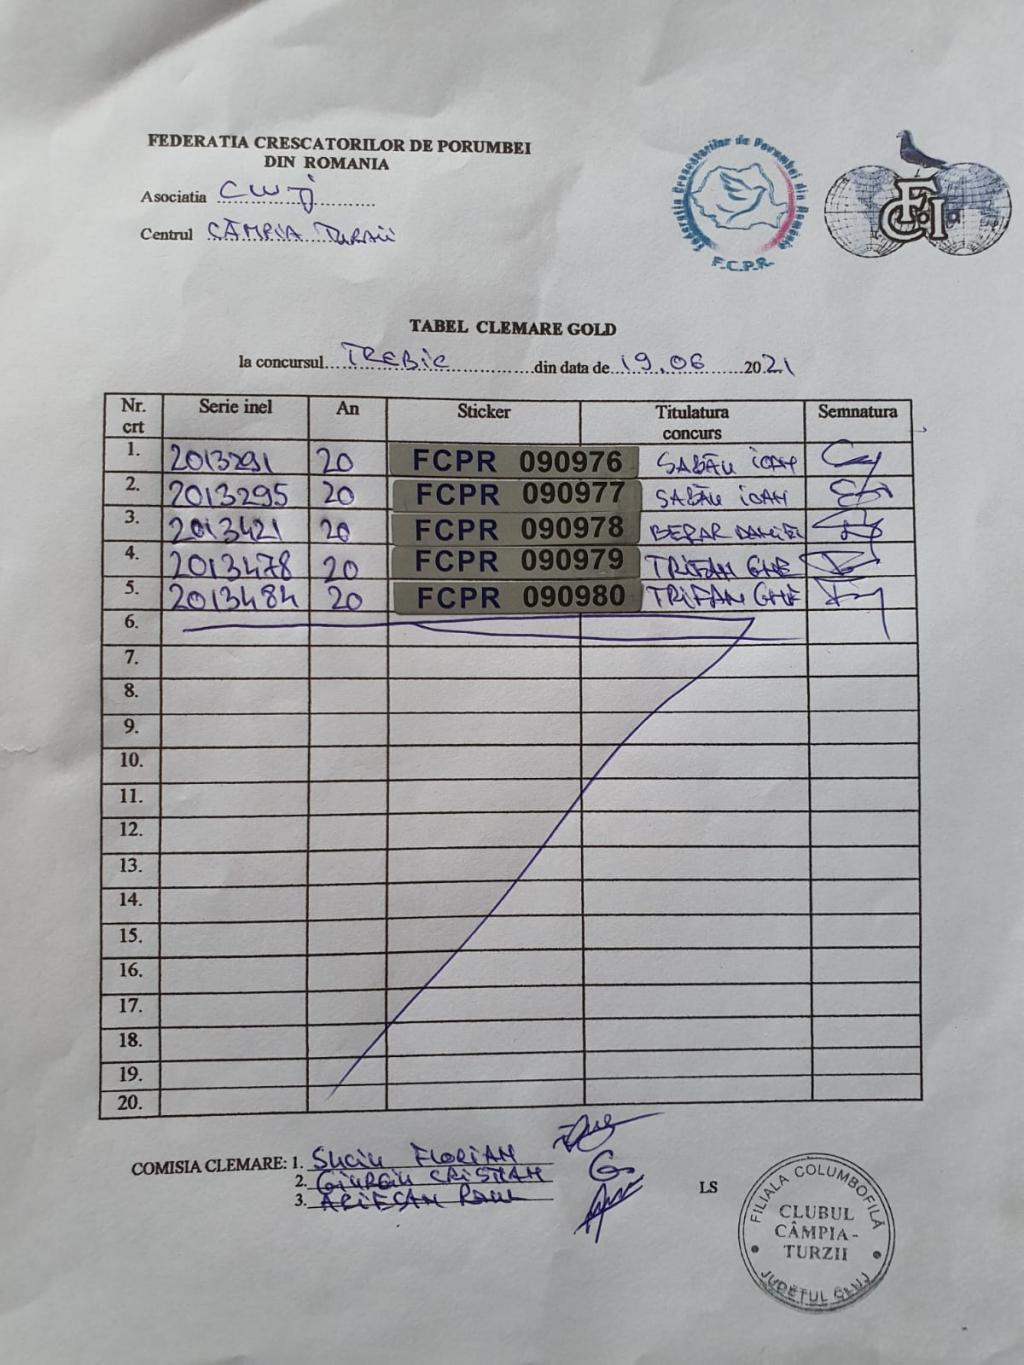 FEDERATIA CRESCATORILOR DE PORUMBEI
DIN ROMANIA
Asociatia Cluj
Centrul CÂMPIA TURZII
Federatia Crescatorilor de Porumbei din România
F.C.P.R.
FCI
TABEL CLEMARE GOLD
la concursul TREBIC din data de 19.06 2021
Nr. crt Serie inel An Sticker Titulatura concurs Semnatura
1. 2013291 20 FCPR 090976 SABĂU IOAN
2. 2013295 20 FCPR 090977 SABĂU IOAN
3. 2013421 20 FCPR 090978 BERAR
4. 2013478 20 FCPR 090979 TRIFAN GHE
5. 2013484 20 FCPR 090980 TRIFAN GHE
6.
7.
8.
9.
10.
11.
12.
13.
14.
15.
16.
17.
18.
19.
20.
COMISIA CLEMARE: 1. Suciu FLORIAN
2. GIURGIU CRISTIAN
3. ARIESAN RAUL
LS
FILIALA COLUMBOFILĂ
CLUBUL
CÂMPIA-
TURZII
JUDEȚUL CLUJ